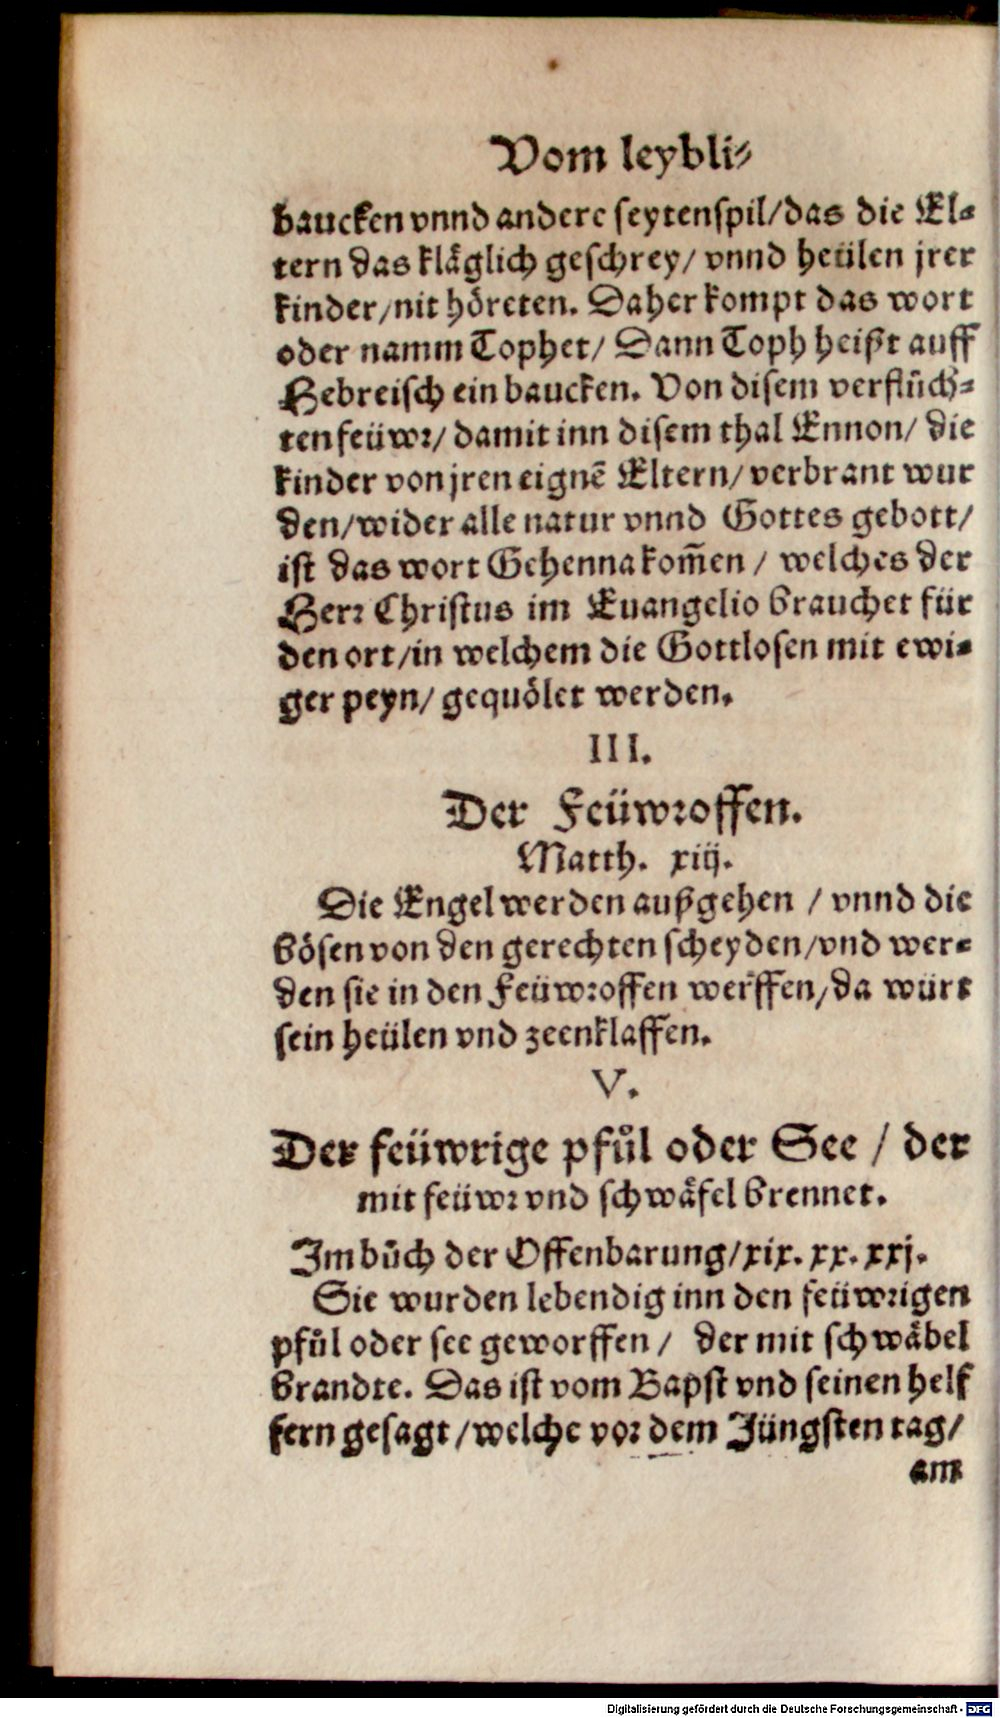 Vom leybli⸗
baucken vnnd andere seytenspil/das die El⸗
tern das kläglich geschrey/ vnnd heülen jrer
kinder/nit höreten. Daher kompt das wort
oder namm Tophet/ Dann Toph heißt auff
Hebreisch ein baucken. Von disem verflůch⸗
ten feüwr/ damit inn disem thal Ennon/ die
kinder von jren eignẽ Eltern/ verbrant wur
den/wider alle natur vnnd Gottes gebott/
ist das wort Gehenna kom̃en / welches der
Herr Christus im Euangelio brauchet für
den ort/in welchem die Gottlosen mit ewi⸗
ger peyn/ gequölet werden.
III.
Der Feüwroffen.
Matth. xiij.
Die Engel werden außgehen / vnnd die
bösen von den gerechten scheyden/vnd wer⸗
den sie in den Feüwroffen werffen/da würt
sein heülen vnd zeenklaffen.
V.
Der feüwrige pfůl oder See / der
mit feüwr vnd schwäfel brennet.
Im bůch der Offenbarung/xix. xx. xxj.
Sie wurden lebendig inn den feüwrigen
pfůl oder see geworffen / der mit schwäbel
brandte. Das ist vom Bapst vnd seinen helf
fern gesagt/welche vor dem Jüngsten tag/
am
Digitalisierung gefördert durch die Deutsche Forschungsgemeinschaft - DFG